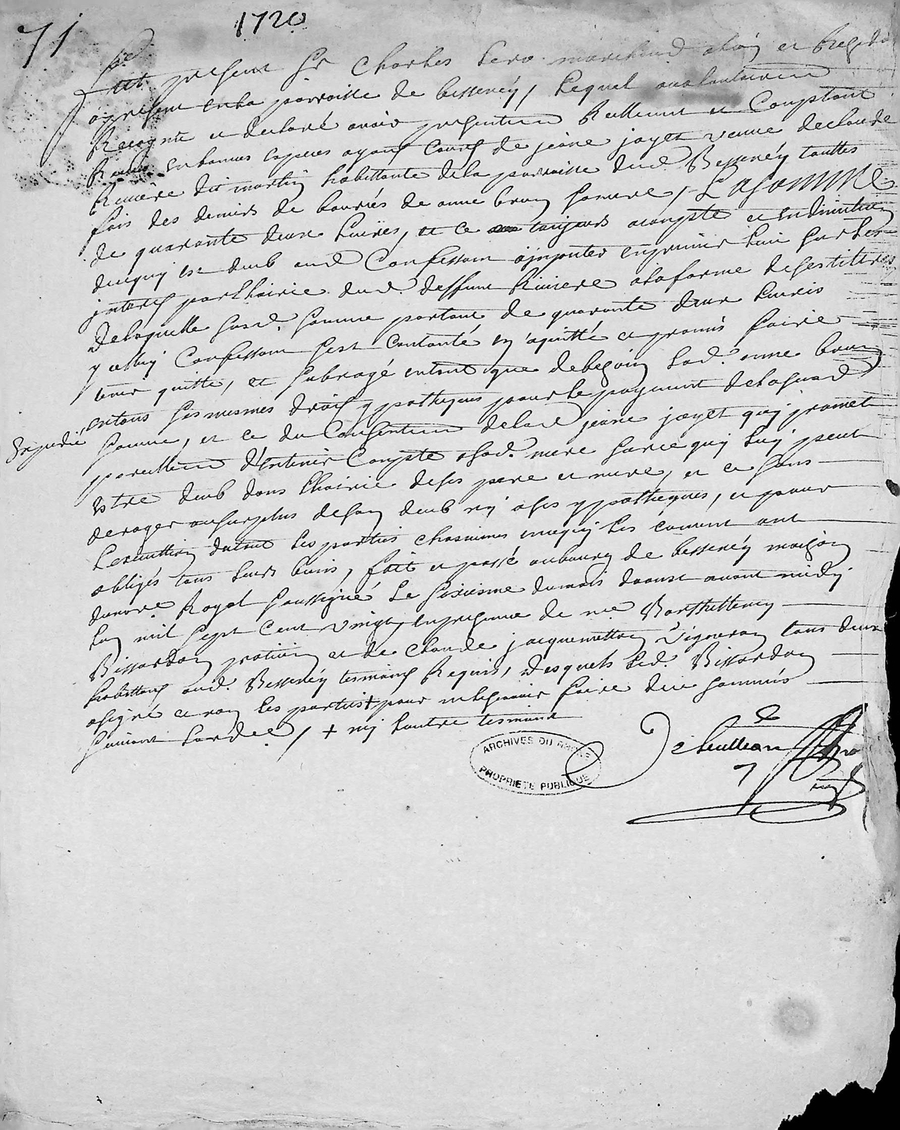 71
1720
fut present Sr Charles marchand et
a present en la parroisse de bessenéy, Lequel vollontairemt
Recognu et declaré avoir presentemt Reellemt et Comptant
Receu en bonnes especes ayant Cours de jeane jayet veuve de claude
Riviere dit martin habittante de la parroisse dud. Bessenéy touttes
fois des deniers de de anne brun sa mere, La somme
de quarante deux Livres, et ce tousjours acompte et en diminution
de ce quy est deub aud Confessant
interest par Lhoirie dud. deffunt Riviere a la forme de ses tiltres
De laquelle susd. somme portant de quarante deux Livres
yceluy Confessant sest contanté en a quitté et promis faire
tenir quitte, et subrogé entant que de besoin Lad. anne brun
en tous ses mesmes droits ypotheques pour le payement de la susd
prejudice
somme, et ce du Consentemt de lad jeane jayet quy promet
pareillemt d'en tenir Compte a sad. mere sur ce quy luy peut
estre deub dans Lhoirie de ses pere et mere, et ce sans
deroger au surplus de son deub ny a ses ypotheques, et pour
Lexecution dutout les parties chascunes en ce quy les concerne ont
obligés tous leurs biens, fait et passé au bourg de bessenéy maison
du nore Royal soussigné le sixiesme du mois daoust avant midy
Lan mil sept cent vingt, en presence de me Barthellemy
Bissardon pratitien et de Claude jacquemetton Vigneron tous deux
habittans aud. Bessenéy tesmoins Requis, desquels led. Bissardon
a signé et non les parties + pour ne le scavoir faire de ce sommés
suivant Lordce / + ny lautre tesmoin
ARCHIVES DU RHÔNE
PROPRIETE PUBLIQUE